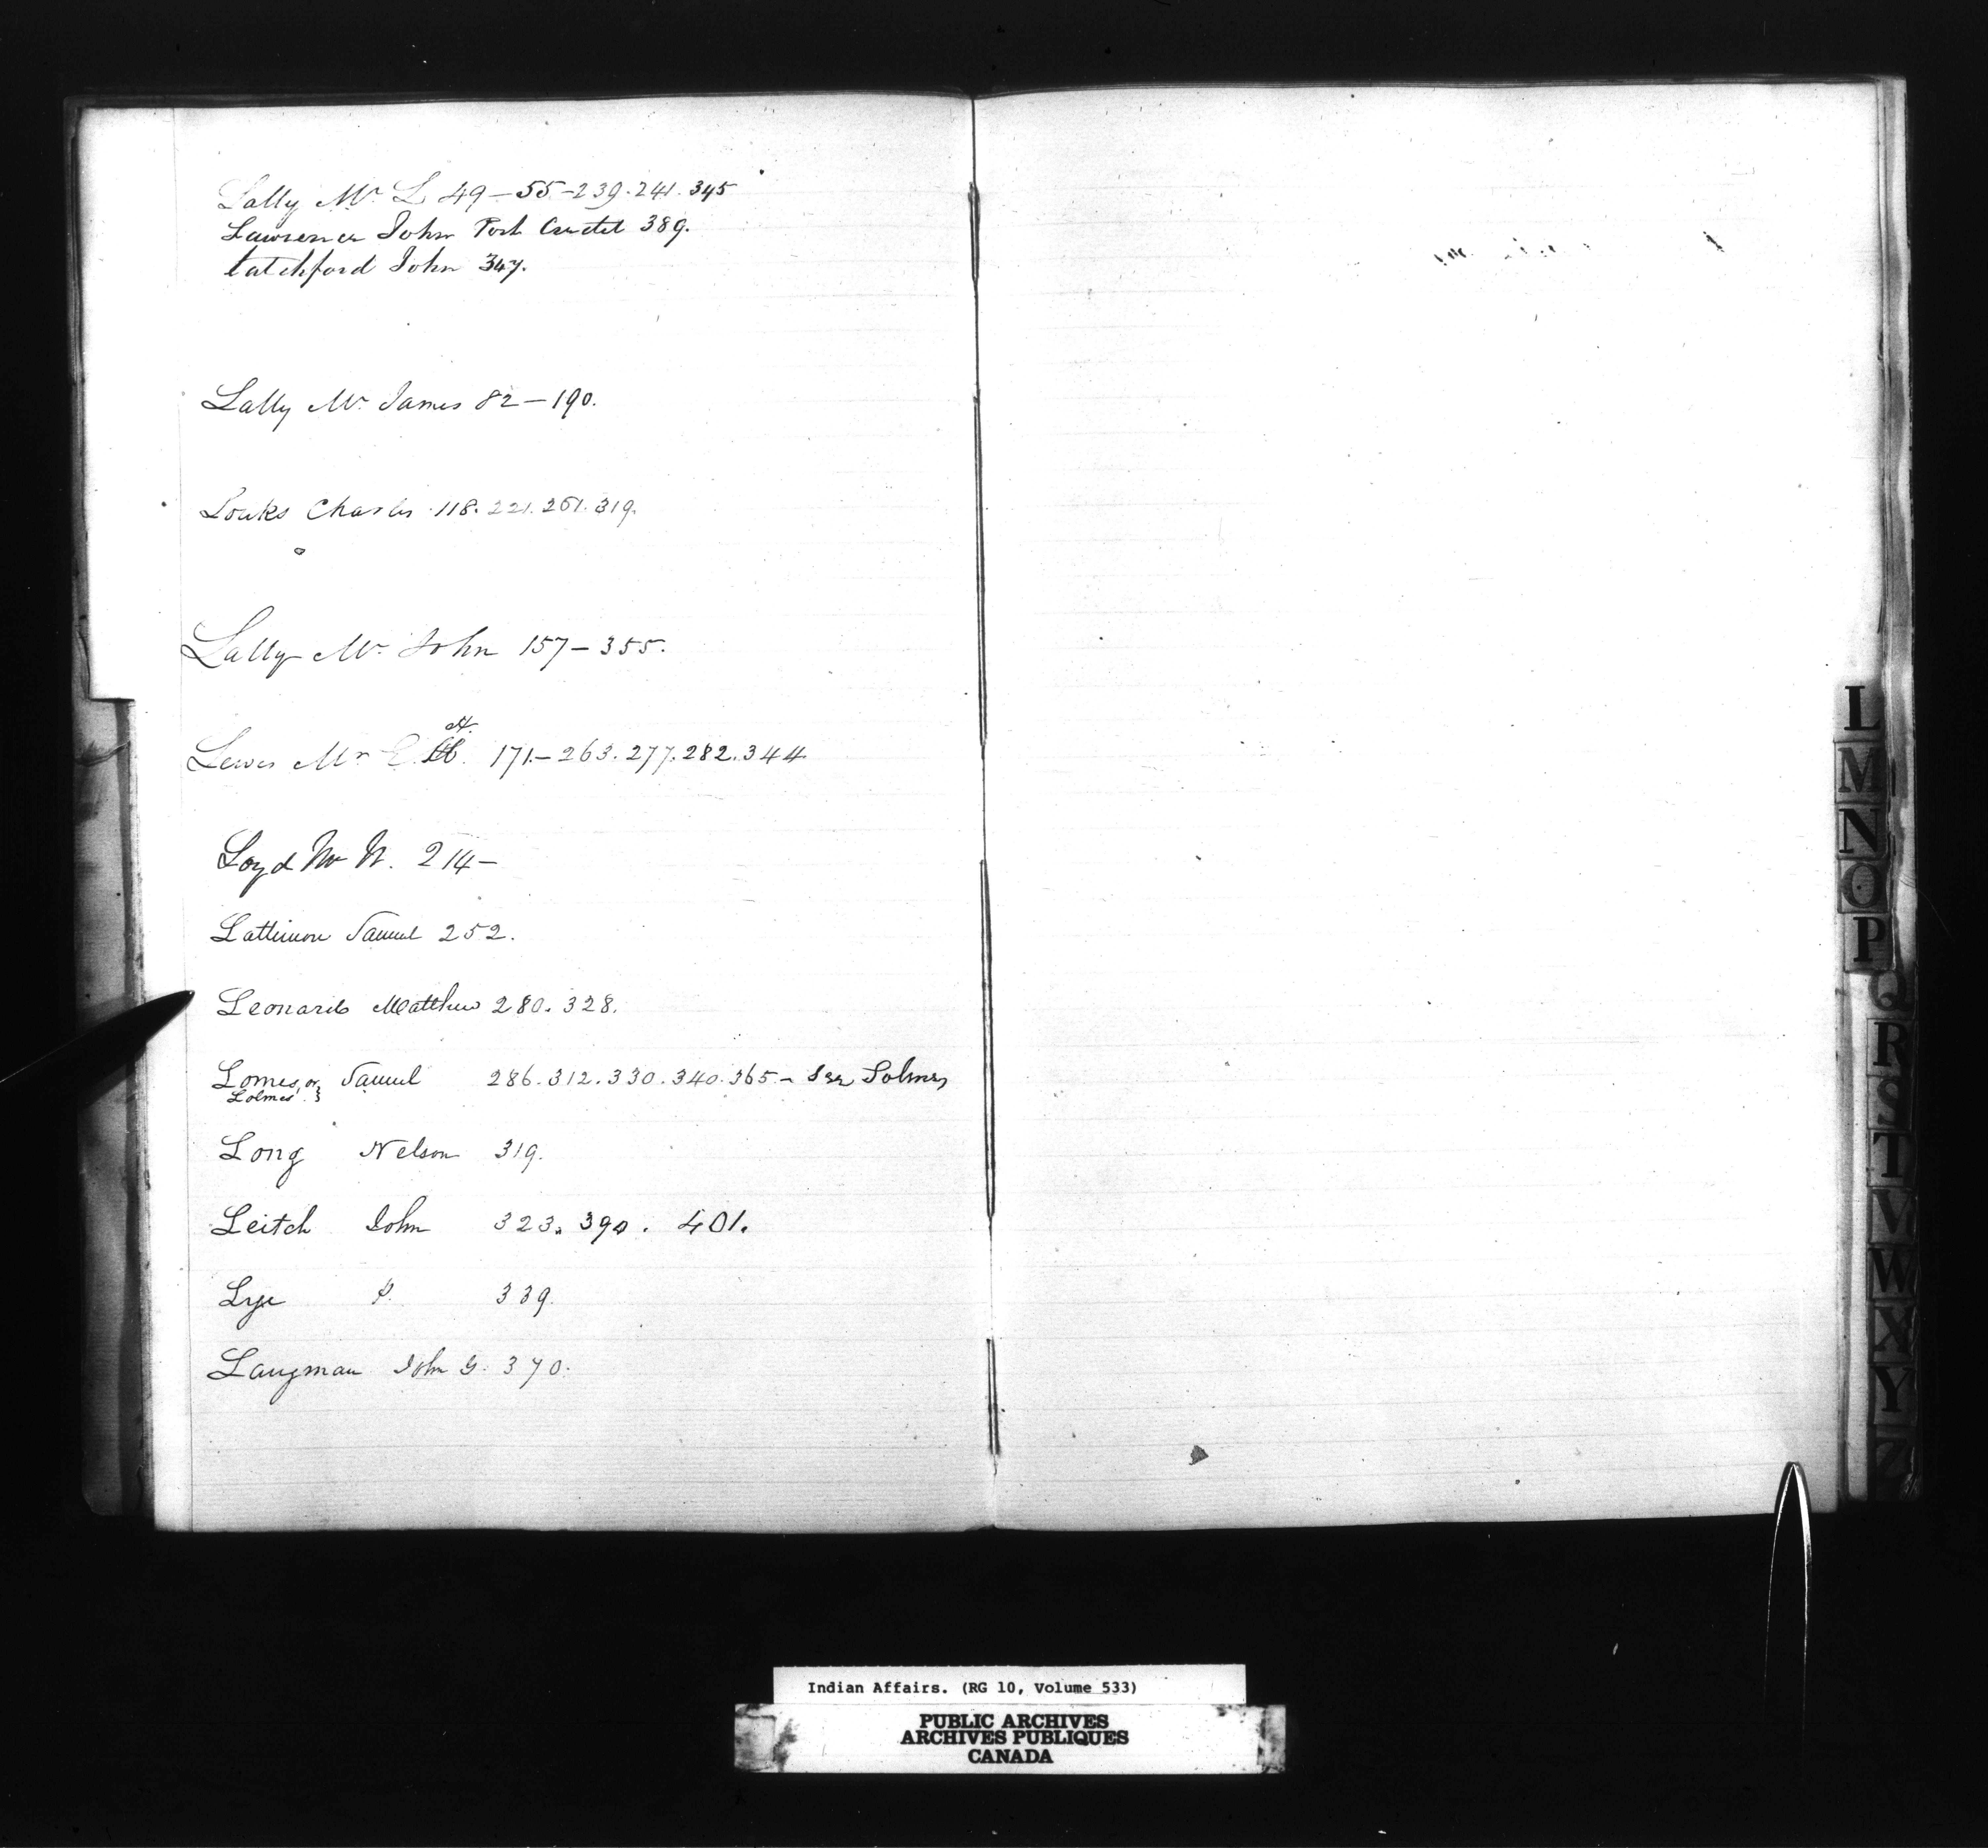 Lally Mr L 49-55-239.241.345
Lawrence John Port Credit 389.
Latchford John 347.
Lally Mr. James 82-190.
Louks Charles 118.221.261.319.
Lally Mr. John 157-355.
H.
Lewis Mr E. 171.-263.277.282.344
Loyd Mr W. 214-
Lattimore Samuel 252.
Leonards Matthew 280.328.
Lomes, or Samuel 286.312.330.340.365.- See Solmes
Lolmes
Long Nelson 319.
Leitch John 323.390. 401.
Lye P. 339.
Langman John G. 370.
L
M
N
O
P
Q
R
S
T
V
W
X
Y
Z
Indian Affairs. (RG 10, Volume 533)
PUBLIC ARCHIVES
ARCHIVES PUBLIQUES
CANADA